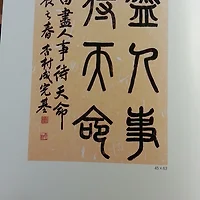 盡人事
待天命
盡人事待天命
之春 杏村成完基